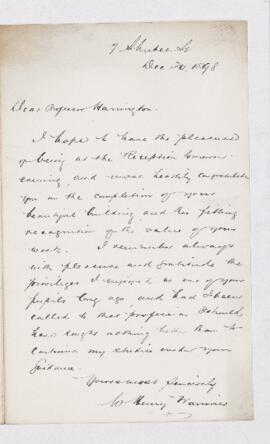 7 Shuter St
Dec 20, 1898
Dear Professor Harrington.
I hope to have the pleasure
of being at the Reception tomorrow
evening, and must heartily congratulate
you on the completion of your
beautiful building and this fitting
recognition of the value of your
work. I remember always
with pleasure and gratitude the
privileges I enjoyed as one of your
pupils long ago and had I been
called to that profession I should
have sought nothing better than to
continue my studies under your
guidance.
Yours most sincerely
W Henry